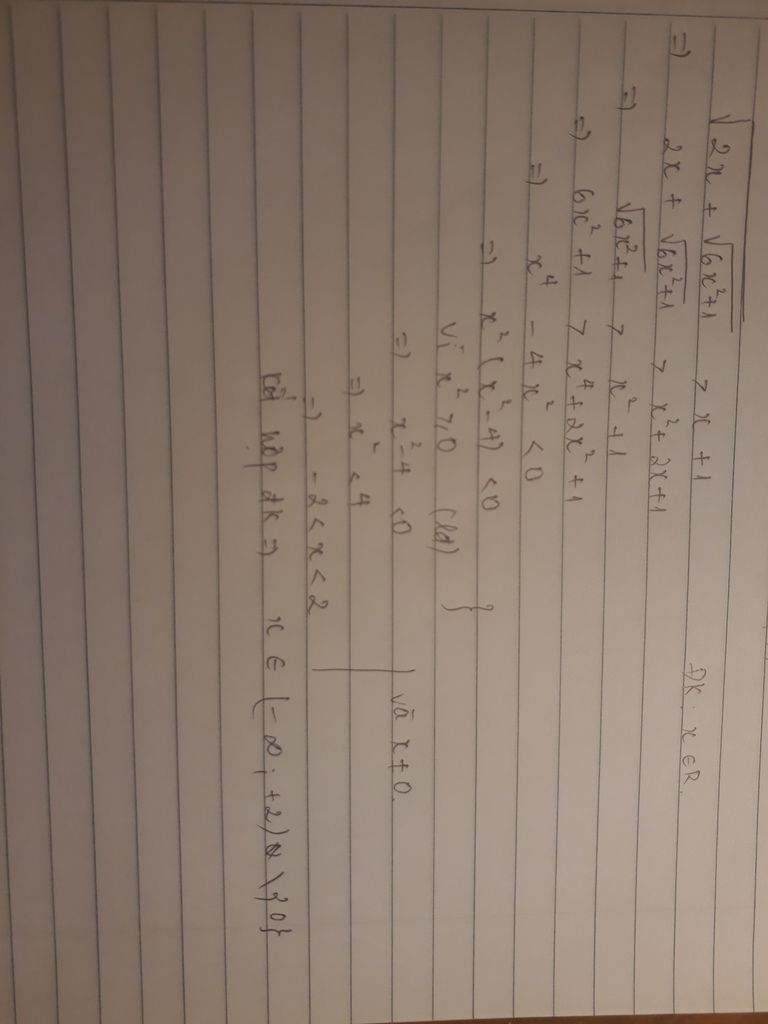 √(2x + √(6x²+1)) > x + 1 ĐK: x ∈ R.
=) 2x + √(6x²+1) > x² + 2x + 1
=) √(6x²+1) > x² + 1
=) 6x² + 1 > x⁴ + 2x² + 1
=) x⁴ - 4x² < 0
=) x² (x² - 4) < 0 }
Vì x² ≥ 0 (lđ)
=) x² - 4 < 0 và x ≠ 0.
=) x² < 4
=) - 2 < x < 2
Kết hợp đk =) x ∈ (-∞; +2) \ {0}